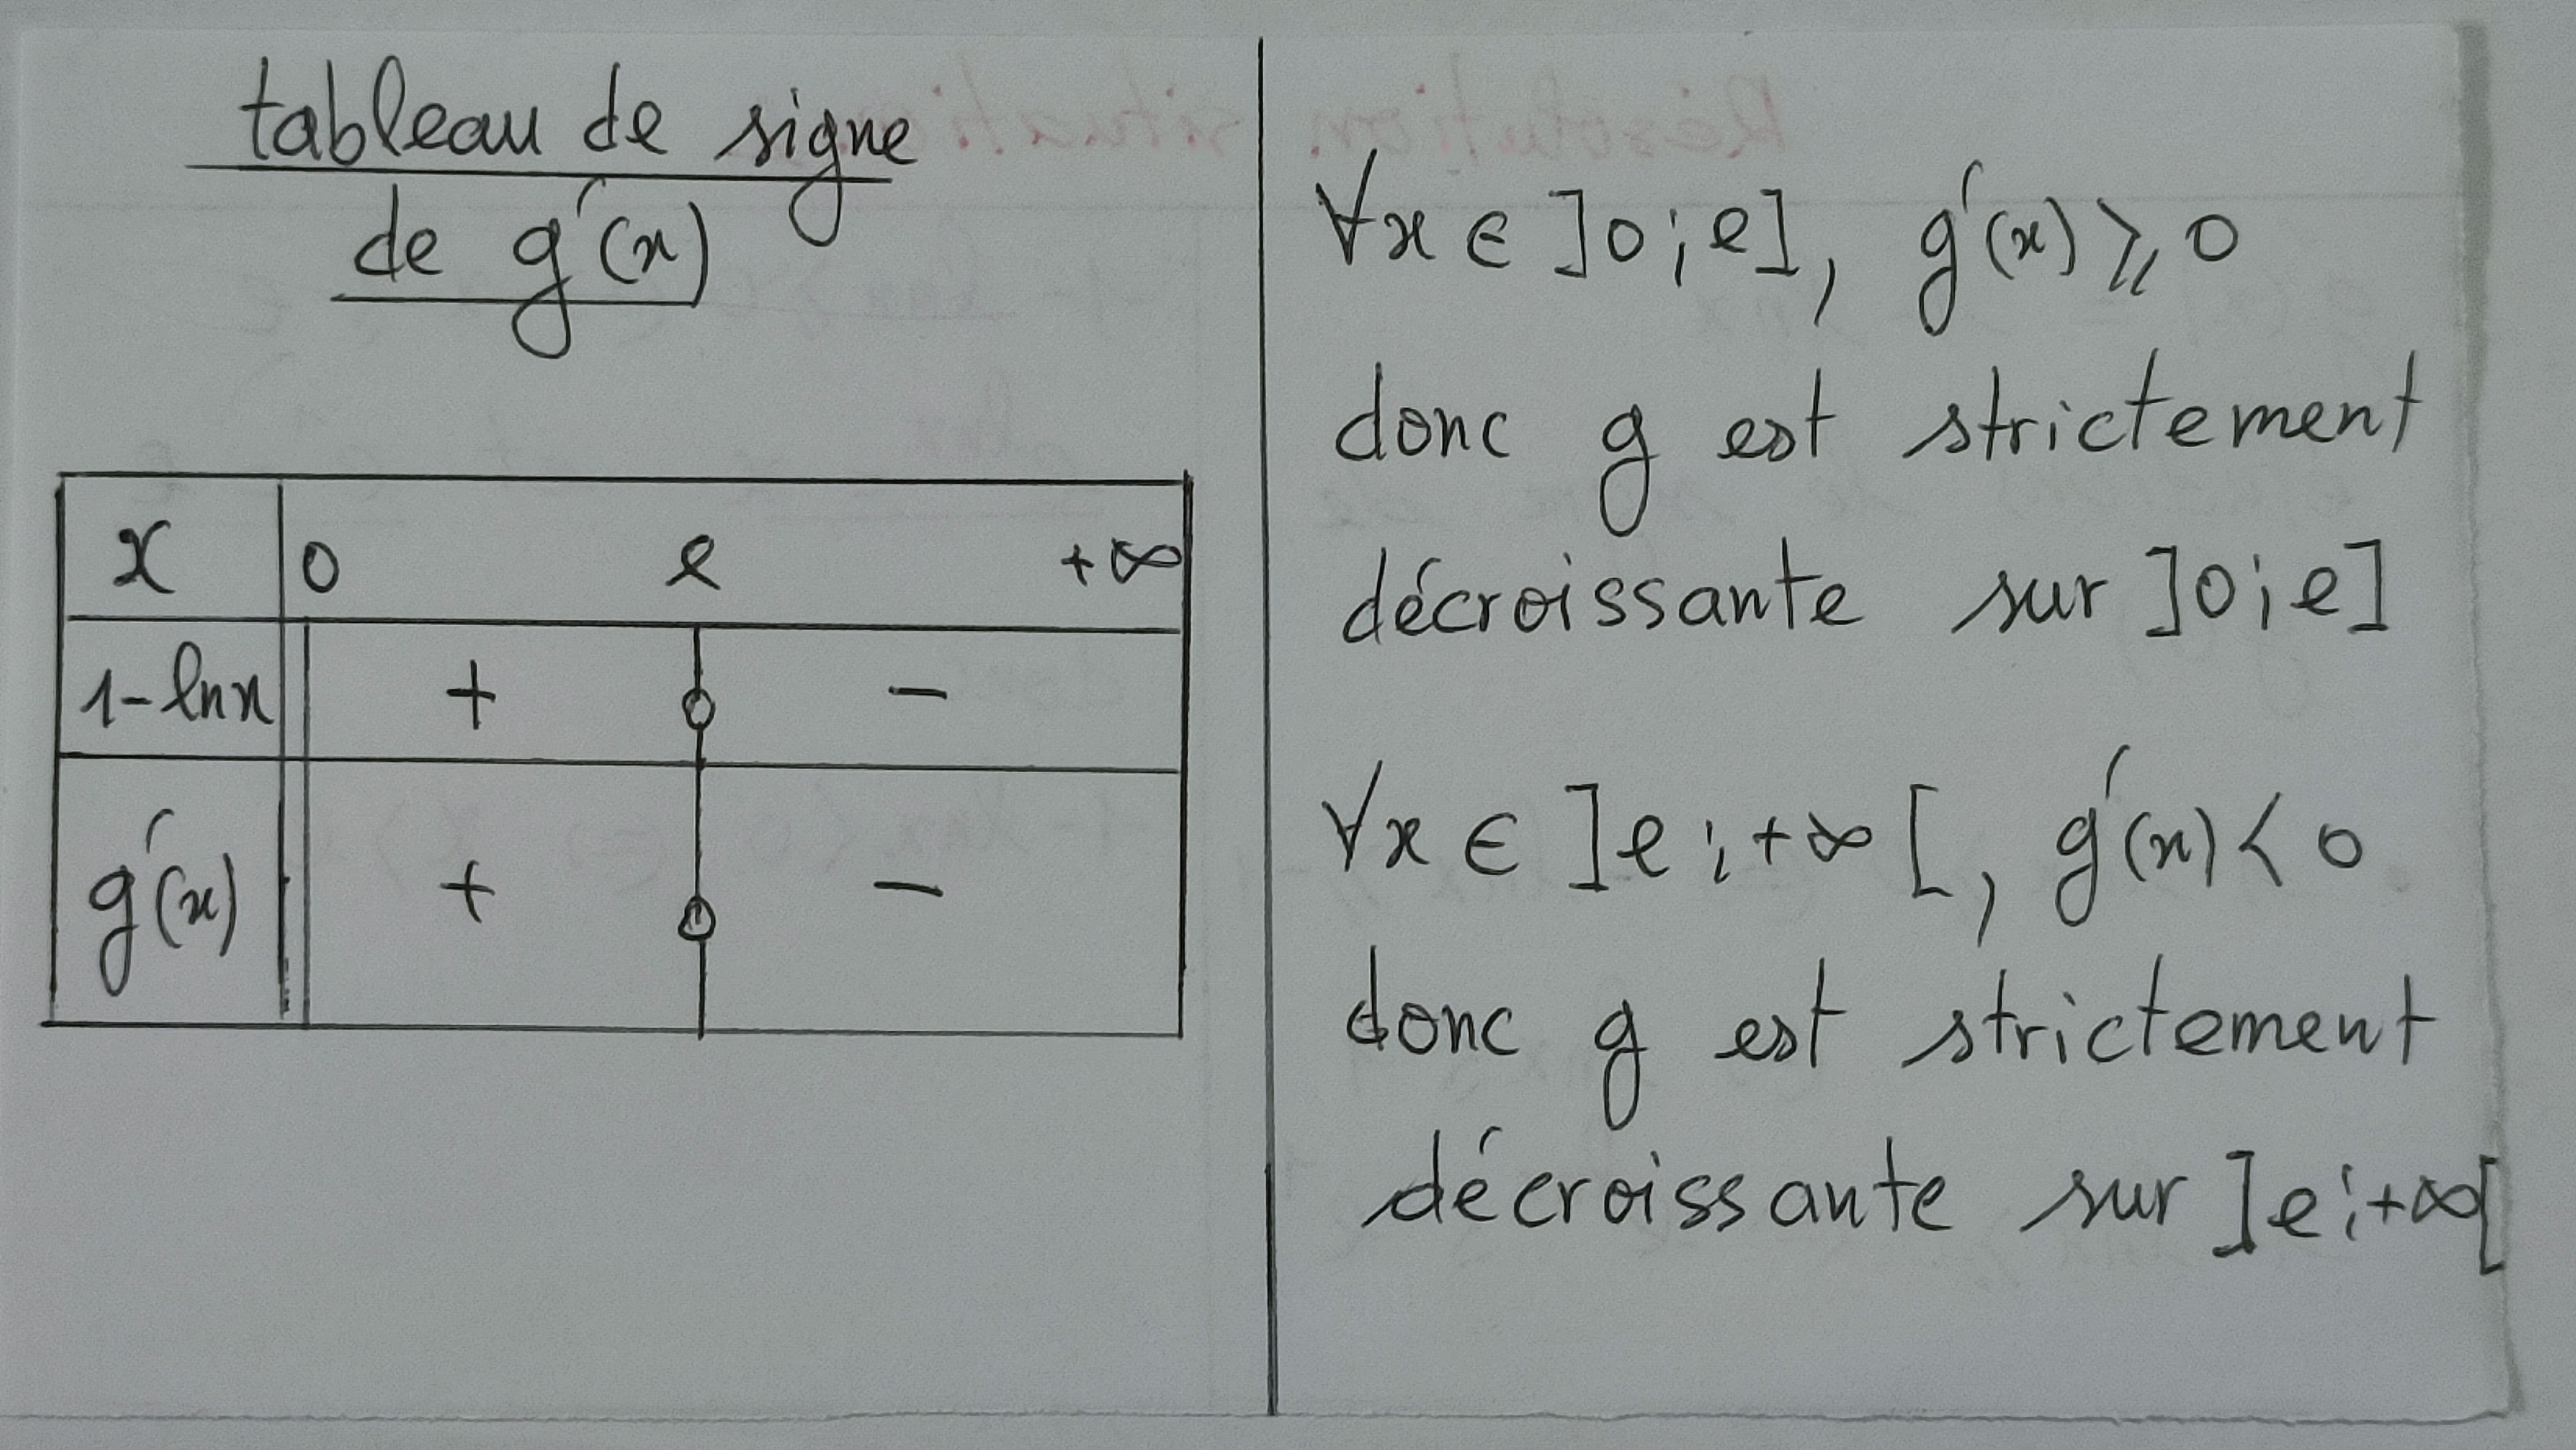 tableau de signe
de g'(x)
x 0 e +∞
1-lnx + 0 -
g'(x) + 0 -
∀x ∈ ]0;e], g'(x) ⩾ 0
donc g est strictement
décroissante sur ]0;e]
∀x ∈ ]e;+∞[, g'(x) < 0
donc g est strictement
décroissante sur ]e;+∞[